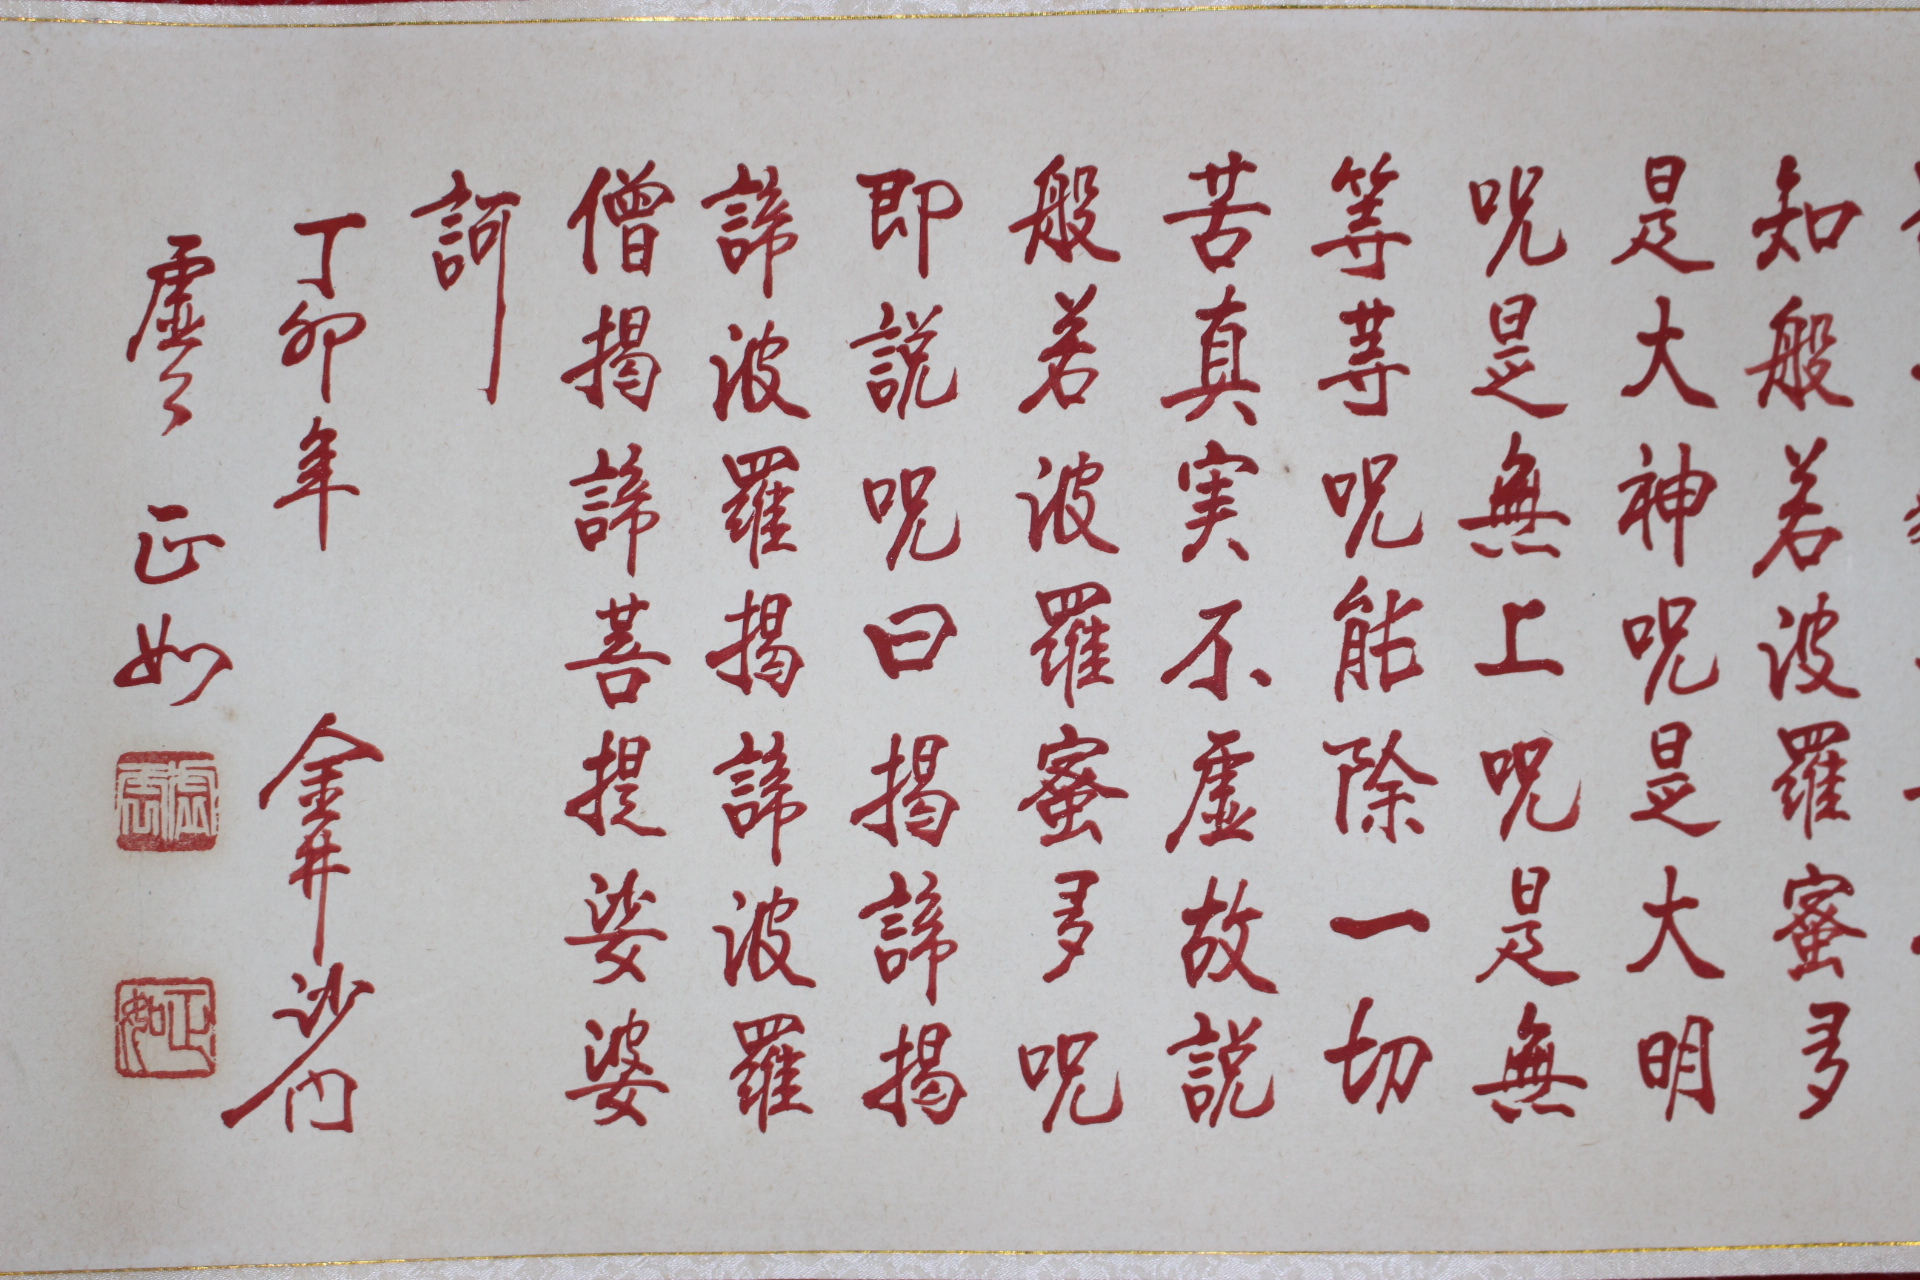 知般若波羅蜜多
是大神呪是大明
呪是無上呪是無
等等呪能除一切
苦真実不虚故説
般若波羅蜜多呪
即説呪曰揭諦揭
諦波羅揭諦波羅
僧揭諦菩提娑婆
訶
丁卯年 金井沙門
虚々 正如
正如